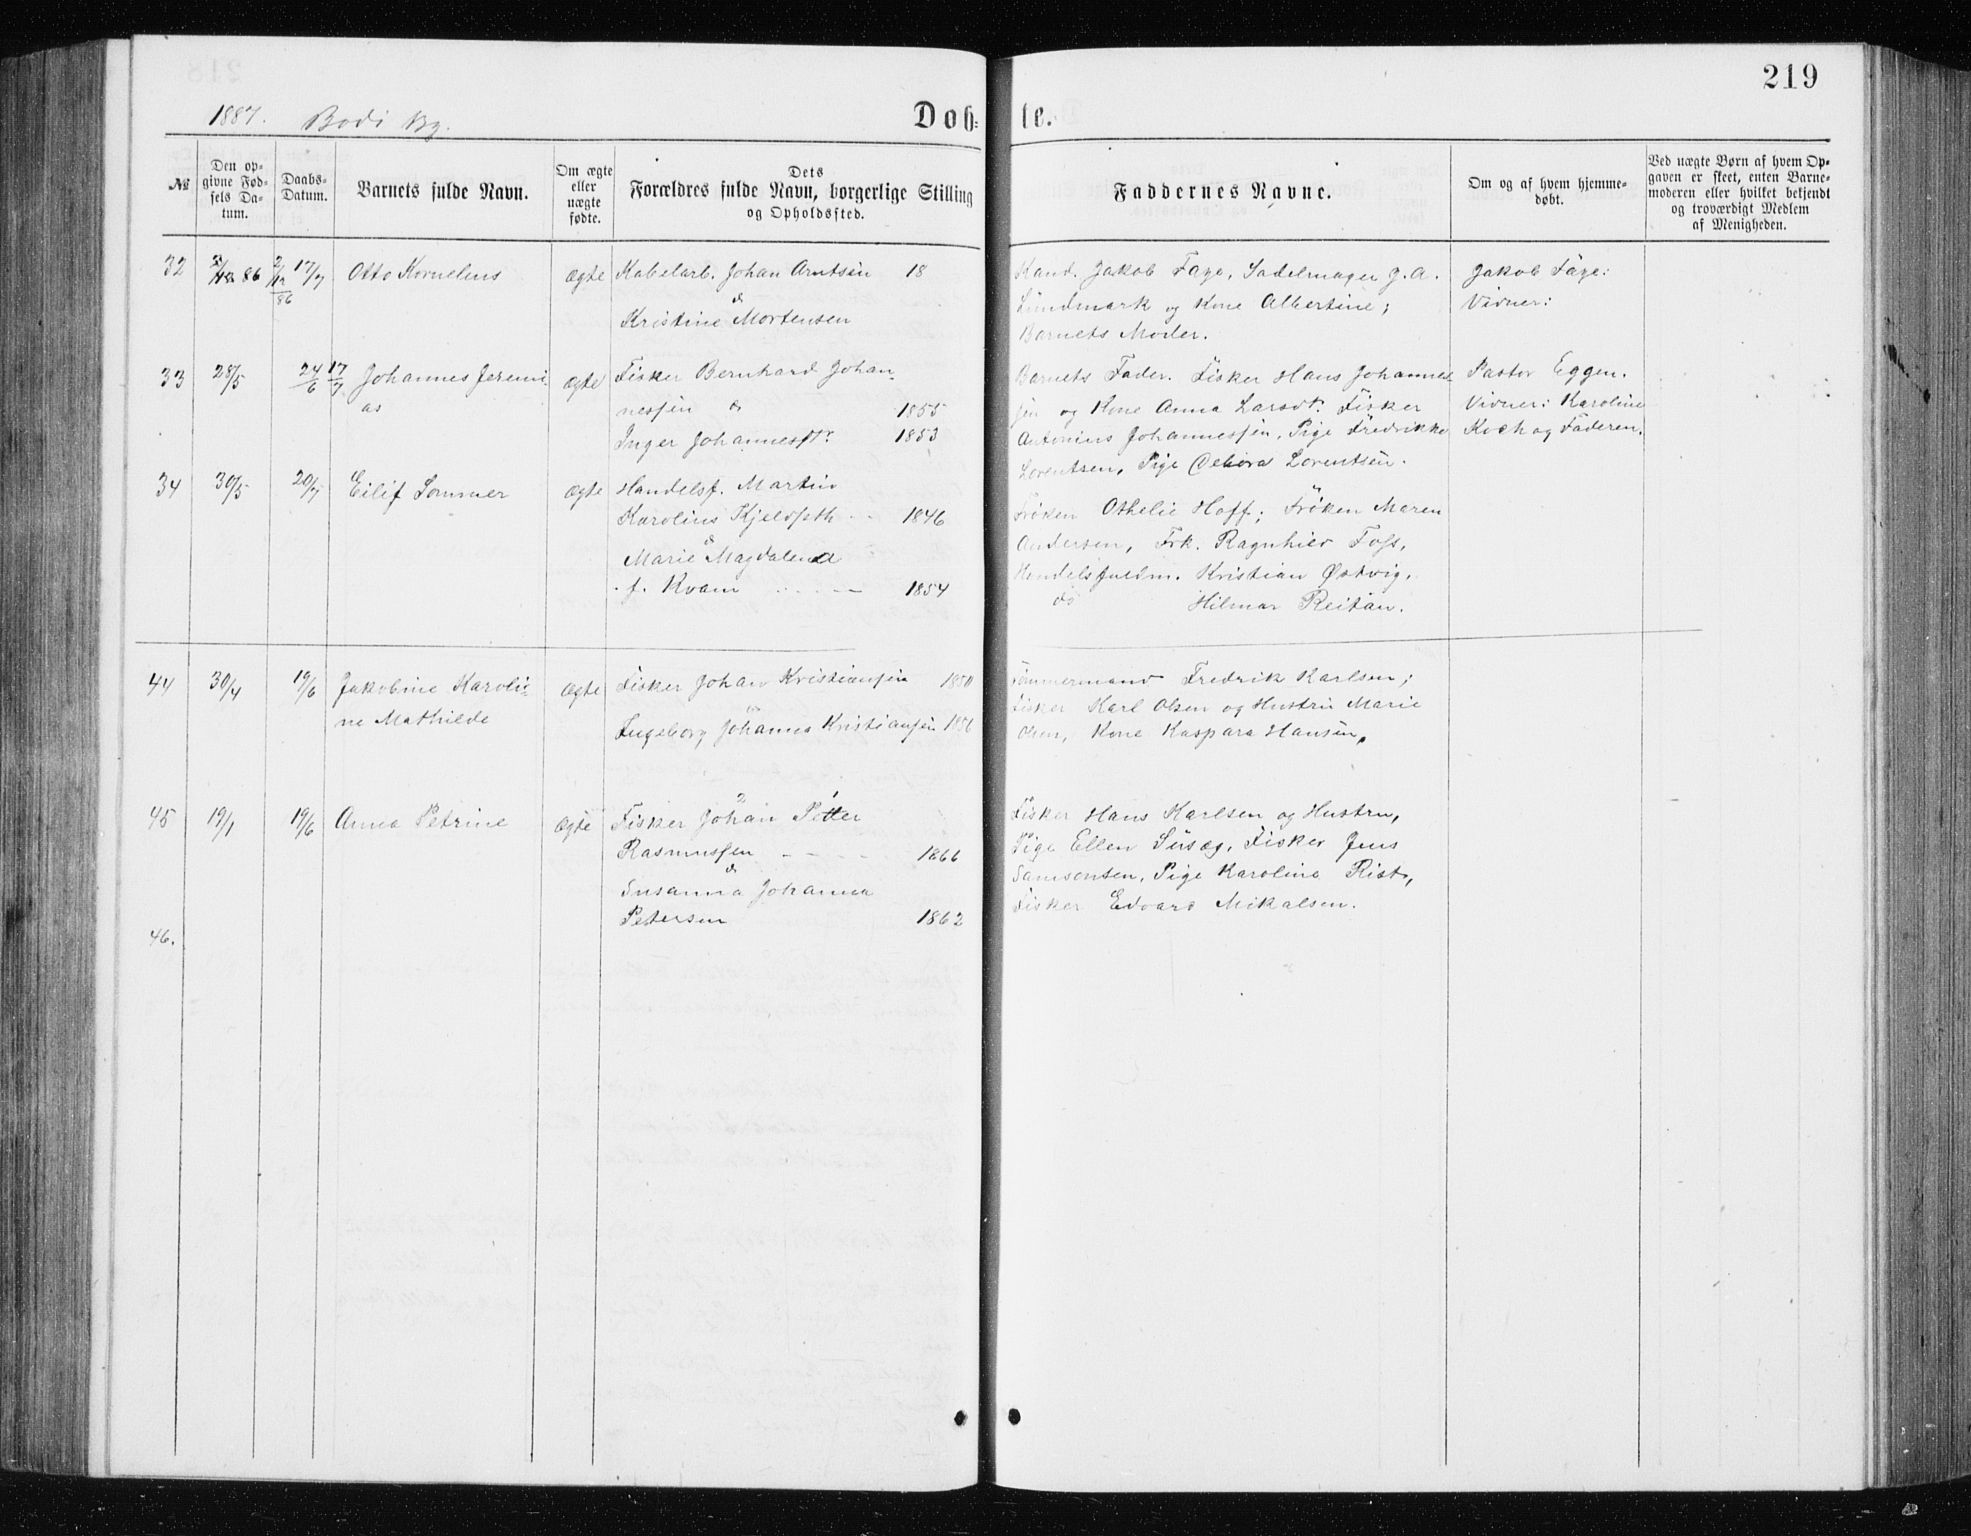 219
1887. Bodø By.
Døb-te.
№
Den opgivne Fødsels Datum.
Daabs-Datum.
Barnets fulde Navn.
Om ægte eller uægte fødte.
Dets Forældres fulde Navn, borgerlige Stilling og Opholdssted.
Faddernes Navne.
Om og af hvem hjemmedøbt.
Ved uægte Børn af hvem Opgaven er skeet, enten Barnemoderen eller hvilket bekjendt og troværdigt Medlem af Menigheden.
32 2/12 86 2/12 86 17/7 Otto Kornelius ægte Kabelarb. Johan Arntsen 18
&
Kristine Mortensen
Kand. Jakob Faye, Sadelmager J. A.
Lundmark og Kone Albertine;
Barnets Moder.
Jakob Faye:
Vidner:
33 28/5 24/6 17/7 Johannes Jeremi-
as
ægte Fisker Bernhard Johan-
nessen & 1855
Inger Johannesdtr. 1853
Barnets Fader. Fisker Hans Johannes-
sen og Kone Anna Larsdt. Fisker
Antonius Johannessen, Pige Fredrikke
Lorentsen, Pige Debora Lorentsen.
Pastor Eggen.
Vidner: Karoline
Koch og Faderen.
34 30/5 20/7 Eilif Sommer ægte Handelsf. Martin
Karolius Kjeldseth 1846
&
Marie Magdalena
f. Kvam 1854
Frøken Othelie Hoff; Frøken Maren
Andersen, Frk. Ragnhild Foss,
Handelsfuldm. Kristian Østvig,
do Hilmar Reitan.
44 30/4 19/6 Jakobine Karoli-
ne Mathilde
ægte Fisker Johan Kristiansen 1850
&
Ingeborg Johanna Kristiansen 1856
Tømmermand Fredrik Karlsen;
Fisker Karl Olsen og Hustru Marie
Olsen, Kone Kaspara Hansen,
45 19/1 19/6 Anna Petrine ægte Fisker Johan Petter
Rasmussen 1866
&
Susanna Johanna
Petersen 1862
Fisker Hans Karlsen og Hustru,
Pige Ellen Susæg, Fisker Jens
Samsonsen, Pige Karoline Rist,
Fisker Edvard Mikalsen.
46.